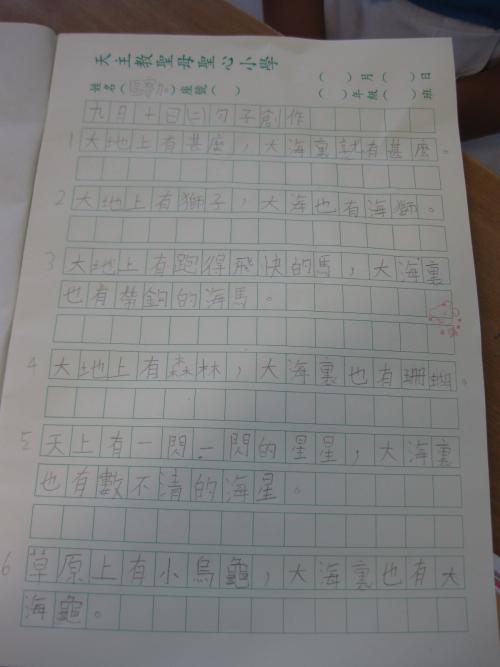 天主教聖母聖心小學
( )月( )日
姓名( )座號( ) ( )年級( )班
九月十日(二)句子創作
1 大地上有甚麼，大海裏就有甚麼。
2 大地上有獅子，大海也有海獅。
3 大地上有跑得飛快的馬，大海裏
也有帶鈎的海馬。
4 大地上有森林，大海裏也有珊瑚。
5 天上有一閃一閃的星星，大海裏
也有數不清的海星。
6 草原上有小烏龜，大海裏也有大
海龜。